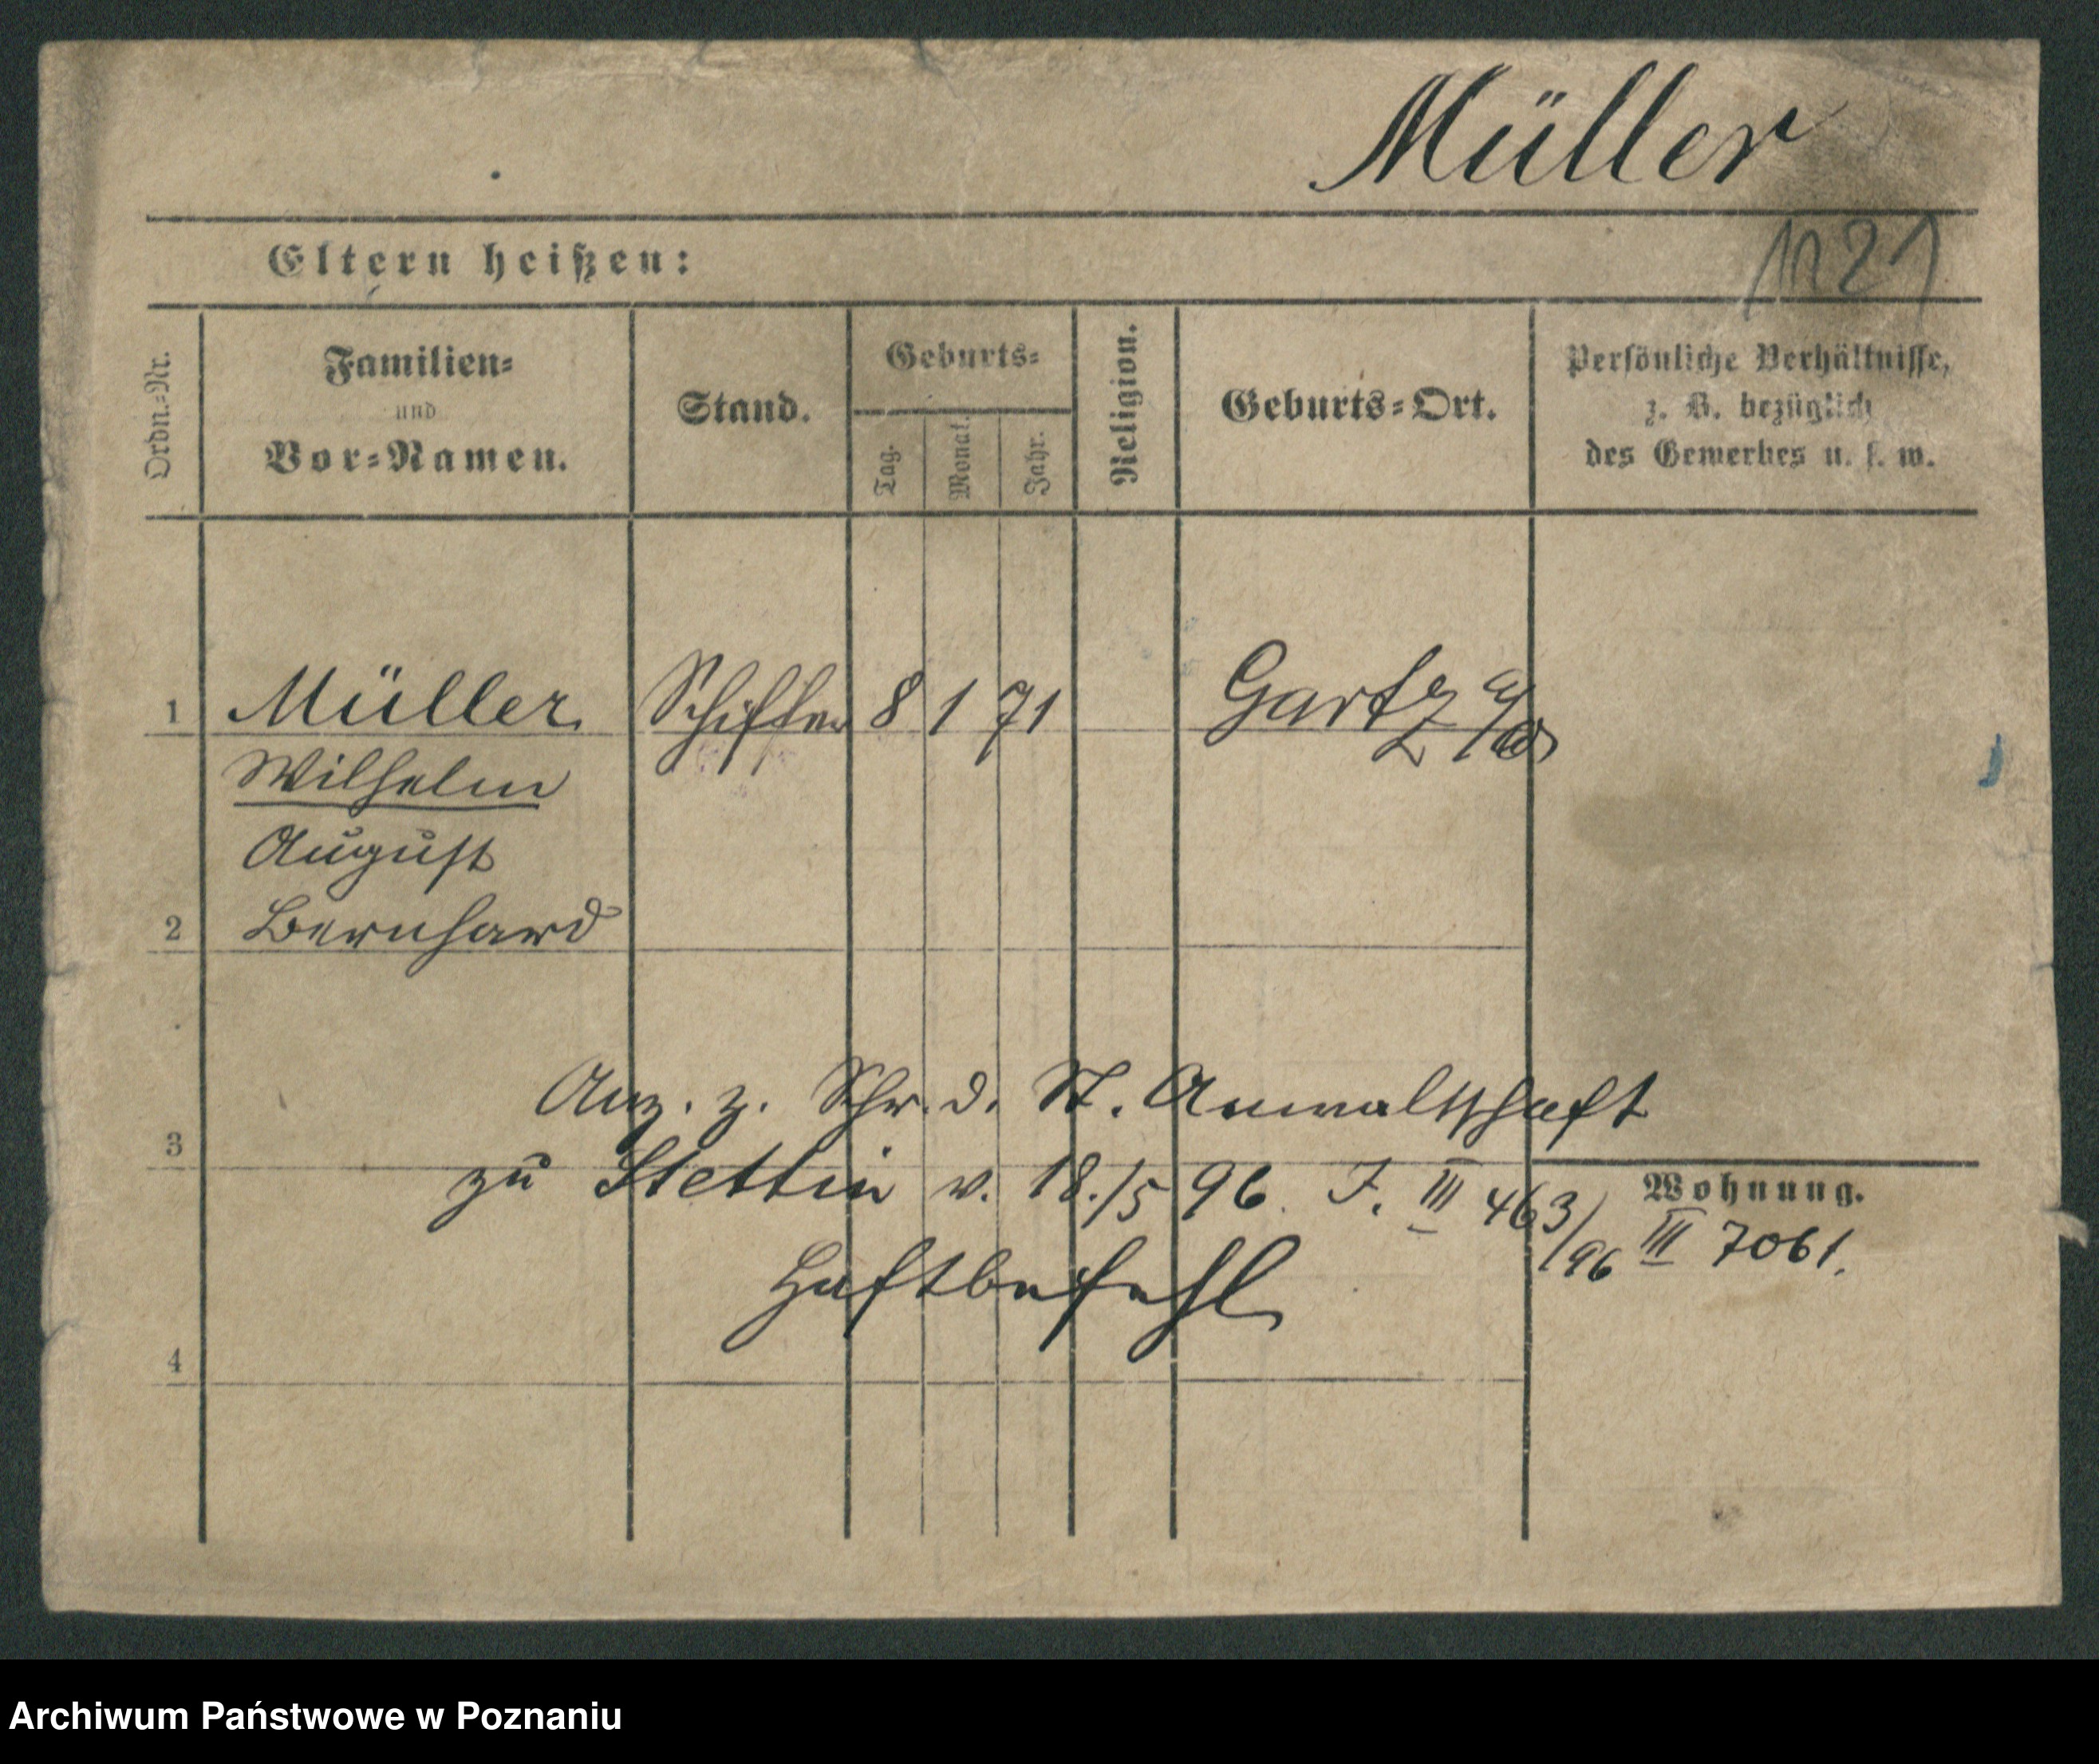 Müller
Eltern heißen:
1121
Ordn.-Nr.
Familien-
und
Vor-Namen.
Stand.
Geburts-
Tag.
Monat.
Jahr.
Religion.
Geburts-Ort.
Persönliche Verhältnisse,
z. B. bezüglich
des Gewerbes u. s. w.
1 Müller Schiffer 8 1 71 Gartz a/O
Wilhelm
August
2 Bernhard
Anz. z. Schr. d. St. Anwaltschaft
3
zu Stettin v. 18./5 96. J. III 463/96 III 7061.
Wohnung.
Haftbefehl
4
Archiwum Państwowe w Poznaniu